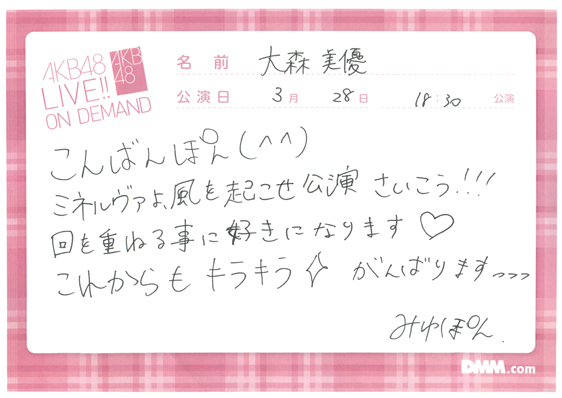 AKB48
LIVE!!
ON DEMAND
AKB
48
名前 大森美優
公演日 3月 28日 18:30 公演
こんばんぽん(^^)
ミネルヴァよ、風を起こせ公演 さいこう!!!
回を重ねる事に好きになります♡
これからも キラキラ✧ がんばりますっっっ
みゆぽん.
DMM.com